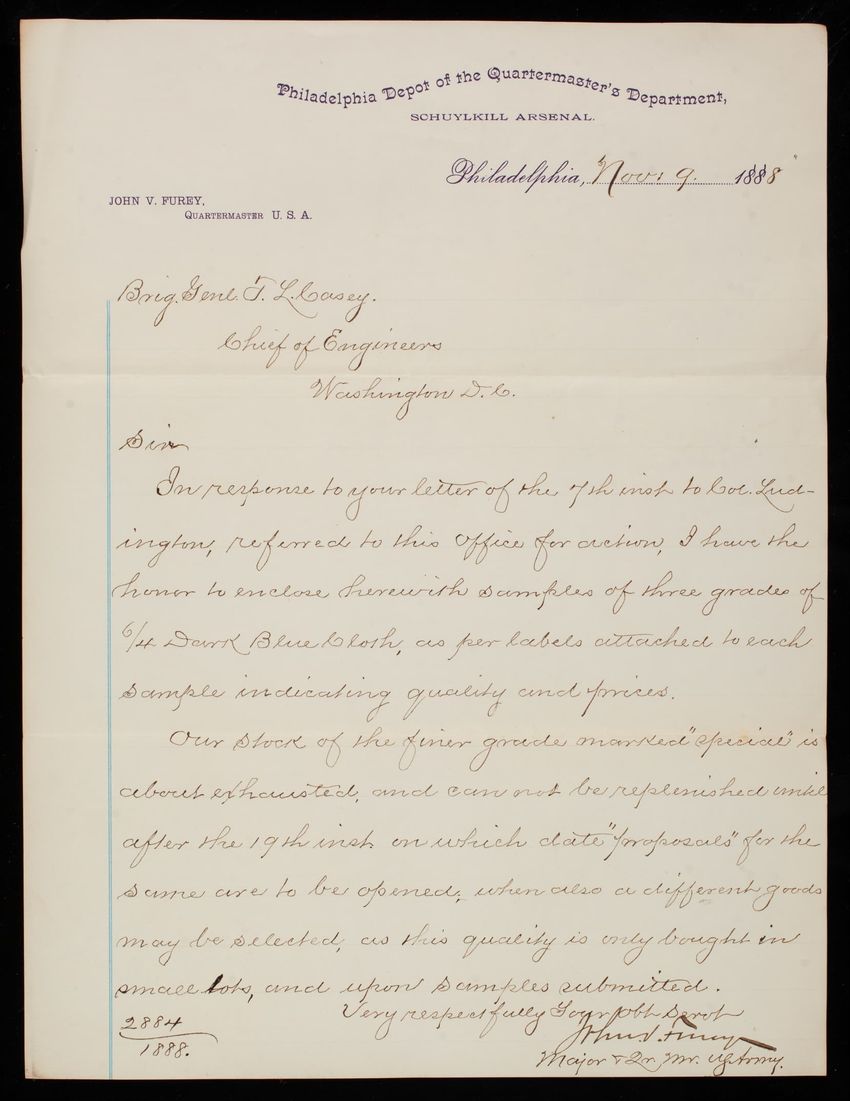 Philadelphia Depot of the Quartermaster's Department,
SCHUYLKILL ARSENAL.
Philadelphia, Nov: 9. 1888
JOHN V. FUREY,
QUARTERMASTER U. S. A.
Brig. Genl. T. L. Casey.
Chief of Engineers
Washington D. C.
Sir
In response to your letter of the 7th inst to Col. Lud-
ington, referred to this office for action, I have the
honor to enclose herewith samples of three grades of
6/4 Dark Blue Cloth, as per labels attached to each
sample indicating quality and prices.
Our stock of the finer grade marked "special" is
about exhausted, and can not be replenished until
after the 19th inst. on which date "proposals" for the
same are to be opened; when also a different goods
may be selected, as this quality is only bought in
small lots, and upon samples submitted.
Very respectfully Your obt servt
John V. Furey
Major & Qr. Mr. US Army.
2884
1888.